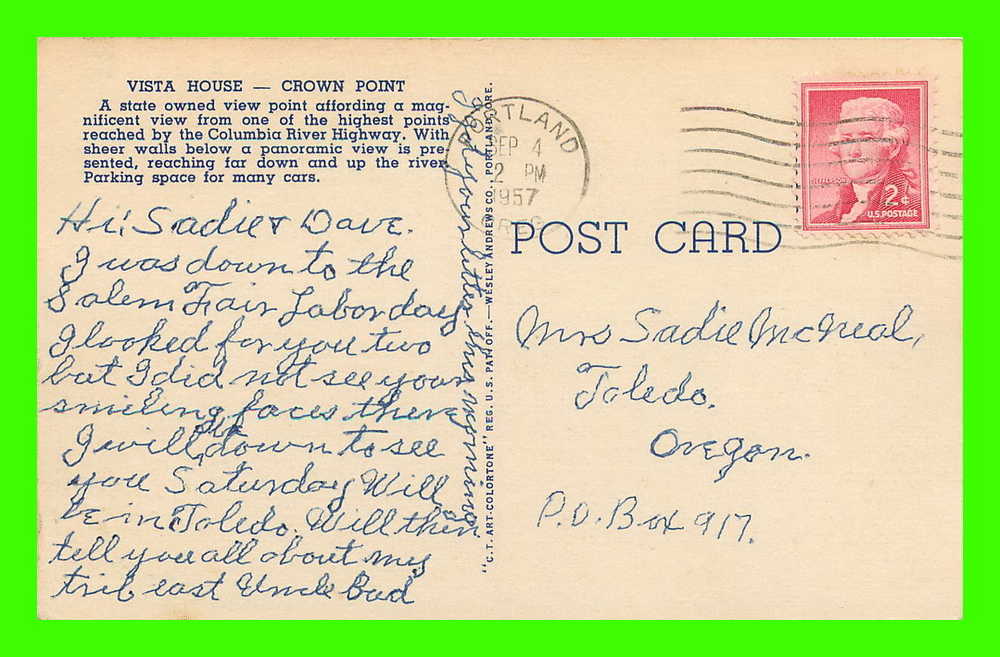 VISTA HOUSE — CROWN POINT
A state owned view point affording a mag-
nificent view from one of the highest points
reached by the Columbia River Highway. With
sheer walls below a panoramic view is pre-
sented, reaching far down and up the river
Parking space for many cars.
Hi! Sadie & Dave.
I was down to the
Salem Fair Laborday
I looked for you two
but I did not see your
smileing faces there
I will be down to see
you Saturday Will
be in Toledo. Will then
tell you all about my
trip east Uncle Bud
I got your letter this morning
"C.T. ART-COLORTONE" REG. U.S. PAT. OFF. — WESLEY ANDREWS CO., PORTLAND, ORE.
PORTLAND
SEP 4
2 PM
1957
OREG
2¢
U.S. POSTAGE
POST CARD
Mrs Sadie McNeal,
Toledo.
Oregon.
P.O. Box 917.